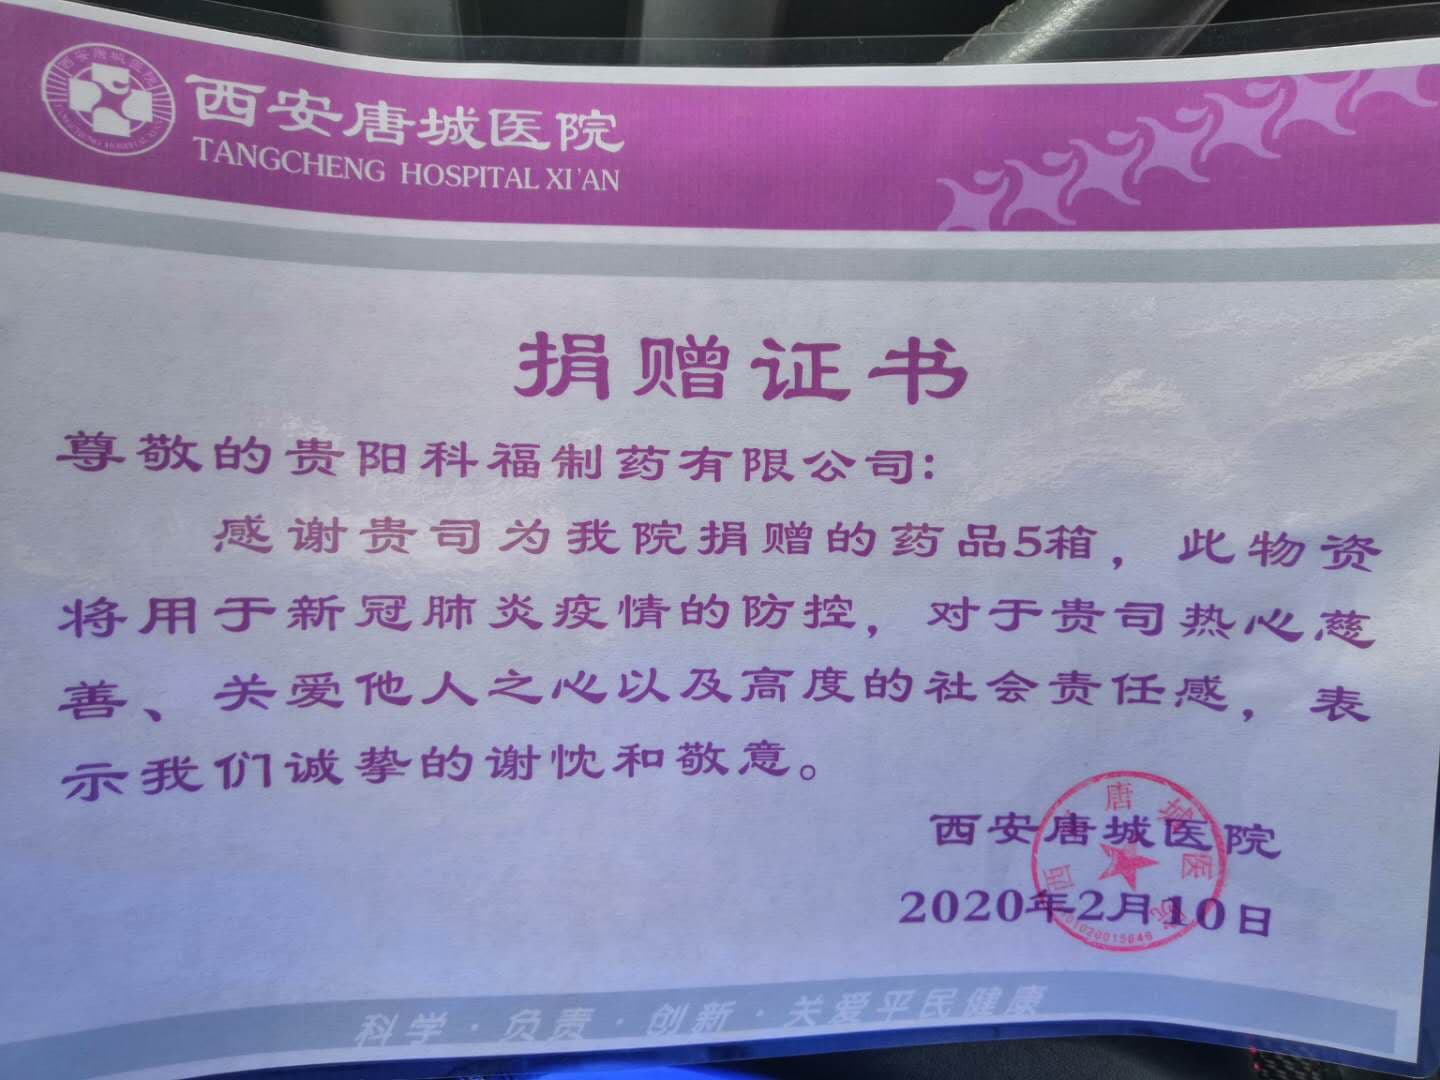 西安唐城医院
TANGCHENG HOSPITAL XI'AN
捐赠证书
尊敬的贵阳科福制药有限公司:
感谢贵司为我院捐赠的药品5箱，此物资
将用于新冠肺炎疫情的防控，对于贵司热心慈
善、关爱他人之心以及高度的社会责任感，表
示我们诚挚的谢忱和敬意。
西安唐城医院
2020年2月10日
科学·负责·创新·关爱平民健康